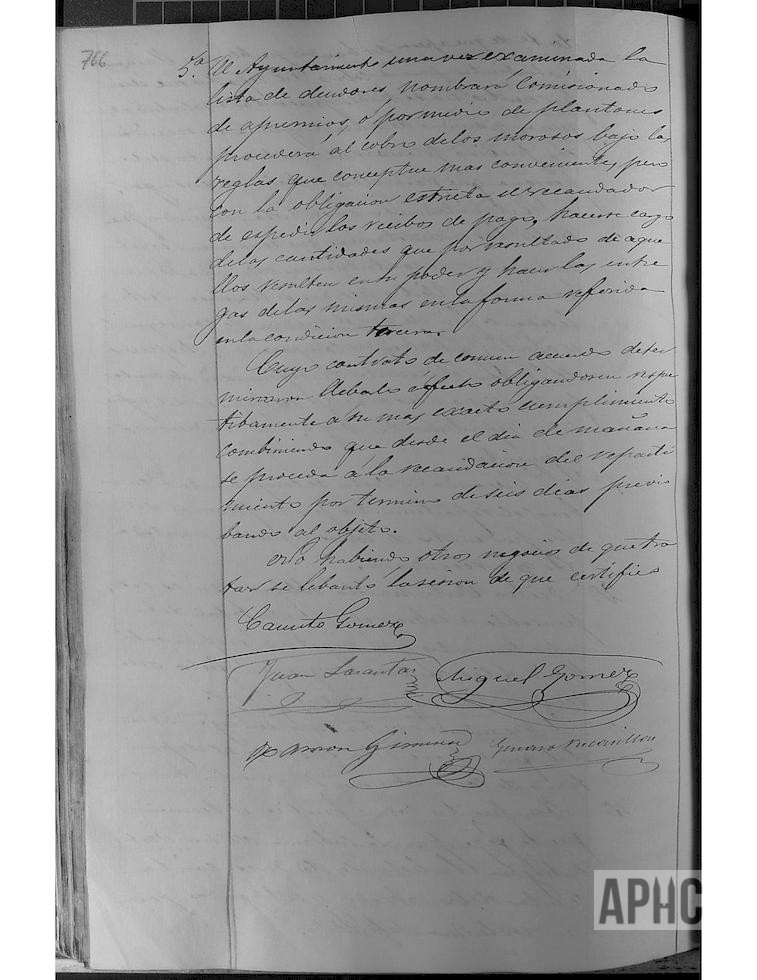 766
5ª El Ayuntamiento una vez examinada la
lista de deudores nombrará Comisionado
de apremios, ó por medio de plantones
procederá al cobro de los morosos bajo las
reglas que conceptue mas conveniente, pero
con la obligacion estricta el recaudador
de espedir los recibos de pago, hacerse cargo
de las cantidades que por resultado de aque
llos resulten en su poder y hacer las entre
gas de las mismas en la forma referida
en la condicion tercera.
Cuyo contrato de comun acuerdo deter
minaron llebarlo á efecto obligandosen respe
tibamente a su mas exacto cumplimiento
combiniendo que desde el dia de mañana
se proceda á la recaudacion del reparti
miento por termino de seis dias previo
bando al objeto.
No habiendo otros negocios de que tra
tar se lebantó la sesion de que certifico
Canuto Gomez
Juan Miguel Gomez
Ramon Gimenez Genaro
APHC